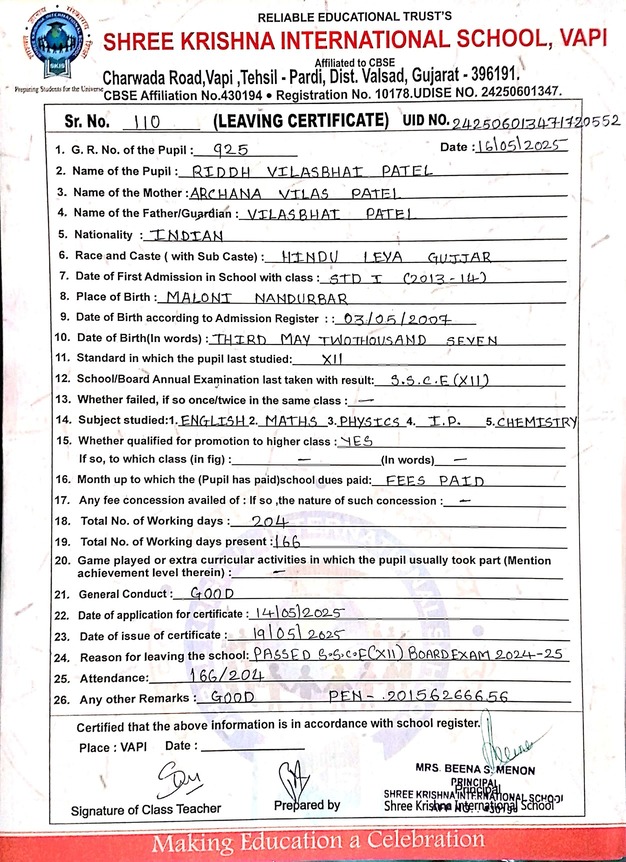 RELIABLE EDUCATIONAL TRUST'S
SHREE KRISHNA INTERNATIONAL SCHOOL, VAPI
Affiliated to CBSE
Charwada Road,Vapi ,Tehsil - Pardi, Dist. Valsad, Gujarat - 396191.
Preparing Students for the Universe
CBSE Affiliation No.430194 • Registration No. 10178.UDISE NO. 24250601347.
SKIS
Sr. No. 110 (LEAVING CERTIFICATE) UID NO. 242506013471720552
1. G. R. No. of the Pupil : 925 Date : 16/05/2025
2. Name of the Pupil : RIDDH VILASBHAI PATEL
3. Name of the Mother : ARCHANA VILAS PATEL
4. Name of the Father/Guardian : VILASBHAI PATEL
5. Nationality : INDIAN
6. Race and Caste ( with Sub Caste) : HINDU LEVA GUJJAR
7. Date of First Admission in School with class : STD I (2013-14)
8. Place of Birth : MALONI NANDURBAR
9. Date of Birth according to Admission Register : : 03/05/2007
10. Date of Birth(In words) : THIRD MAY TWOTHOUSAND SEVEN
11. Standard in which the pupil last studied: XII
12. School/Board Annual Examination last taken with result: S.S.C.E (XII)
13. Whether failed, if so once/twice in the same class : —
14. Subject studied:1. ENGLISH 2. MATHS 3. PHYSICS 4. I.P. 5. CHEMISTRY
15. Whether qualified for promotion to higher class : YES
If so, to which class (in fig) : — (In words) —
16. Month up to which the (Pupil has paid)school dues paid: FEES PAID
17. Any fee concession availed of : If so ,the nature of such concession : —
18. Total No. of Working days : 204
19. Total No. of Working days present : 166
20. Game played or extra curricular activities in which the pupil usually took part (Mention
achievement level therein) : —
21. General Conduct : GOOD
22. Date of application for certificate : 14/05/2025
23. Date of issue of certificate : 19/05/2025
24. Reason for leaving the school: PASSED S.S.C.E(XII) BOARD EXAM 2024-25
25. Attendance: 166/204
26. Any other Remarks : GOOD PEN- .20156266656
Certified that the above information is in accordance with school register.
Place : VAPI Date :
MRS. BEENA S. MENON
PRINCIPAL
Principal
SHREE KRISHNA INTERNATIONAL SCHOOL
Signature of Class Teacher Prepared by Shree Krishna International School
Making Education a Celebration